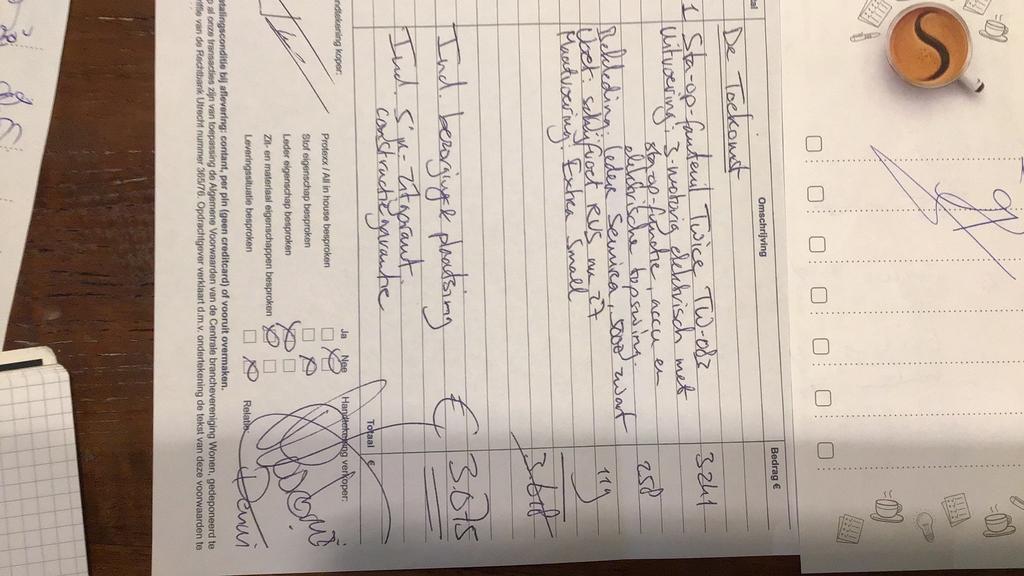 Omschrijving
Bedrag €
De Toekomst
1 Sta-op-fauteuil Twice TW
3241
Uitvoering: 3-motorig elektrisch met
sta-op-functie, accu en
elektrische topswing
258
Bekleding: leder Semica, zwart
Voet: schijfvoet RVS nr 27
119
Maatvoering: Extra Small
Incl. bezorging & plaatsing
€ 3075
Incl. 5 jr. zitgarant.
constructiegarantie
Totaal €
ndtekening koper:
Ja
Nee
Handtekening verkoper:
Protexx / All in house besproken
Stof eigenschap besproken
Leder eigenschap besproken
Zit- en materiaal eigenschappen besproken
Leveringssituatie besproken
Relatie
talingsconditie bij aflevering: contant, per pin (geen creditcard) of vooruit overmaken.
p al onze transacties zijn van toepassing de Algemene Voorwaarden van de Centrale branchevereniging Wonen, gedeponeerd te
iffie van de Rechtbank Utrecht nummer 365/76. Opdrachtgever verklaart d.m.v. ondertekening de tekst van deze voorwaarden te